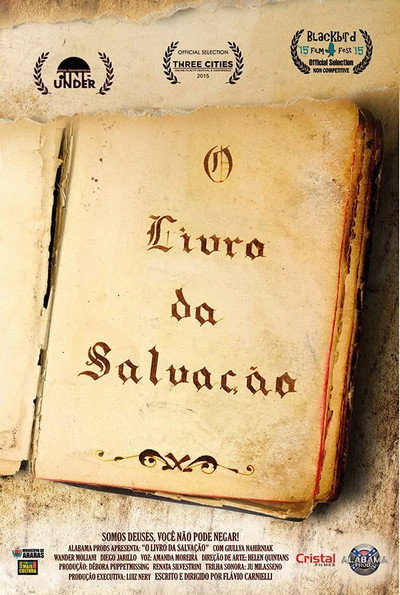 UNDER
OFFICIAL SELECTION
THREE CITIES
2015
BLACKbird
15 FILM FEST 15
Official Selection
NON COMPETITIVE
O
Livro
da
Salvação
SOMOS DEUSES, VOCÊ NÃO PODE NEGAR!
ALABAMA PRODS APRESENTA: "O LIVRO DA SALVAÇÃO" COM GIULLYA NAHIRNIAK
WANDER MOLIANI DIEGO JARILLO VOZ: AMANDA MOREIRA DIREÇÃO DE ARTE: HELEN QUINTANS
PRODUÇÃO: DÉBORA PUPPETMISSING RENATA SILVESTRINI TRILHA SONORA: JU MILASSENO
PRODUÇÃO EXECUTIVA: LUIZ NERY ESCRITO E DIRIGIDO POR FLÁVIO CARNIELLI
MUNICÍPIO DE
ARARAS
MAIS
CULTURA
Cristal
FILMES
ALABAMA
PRODS